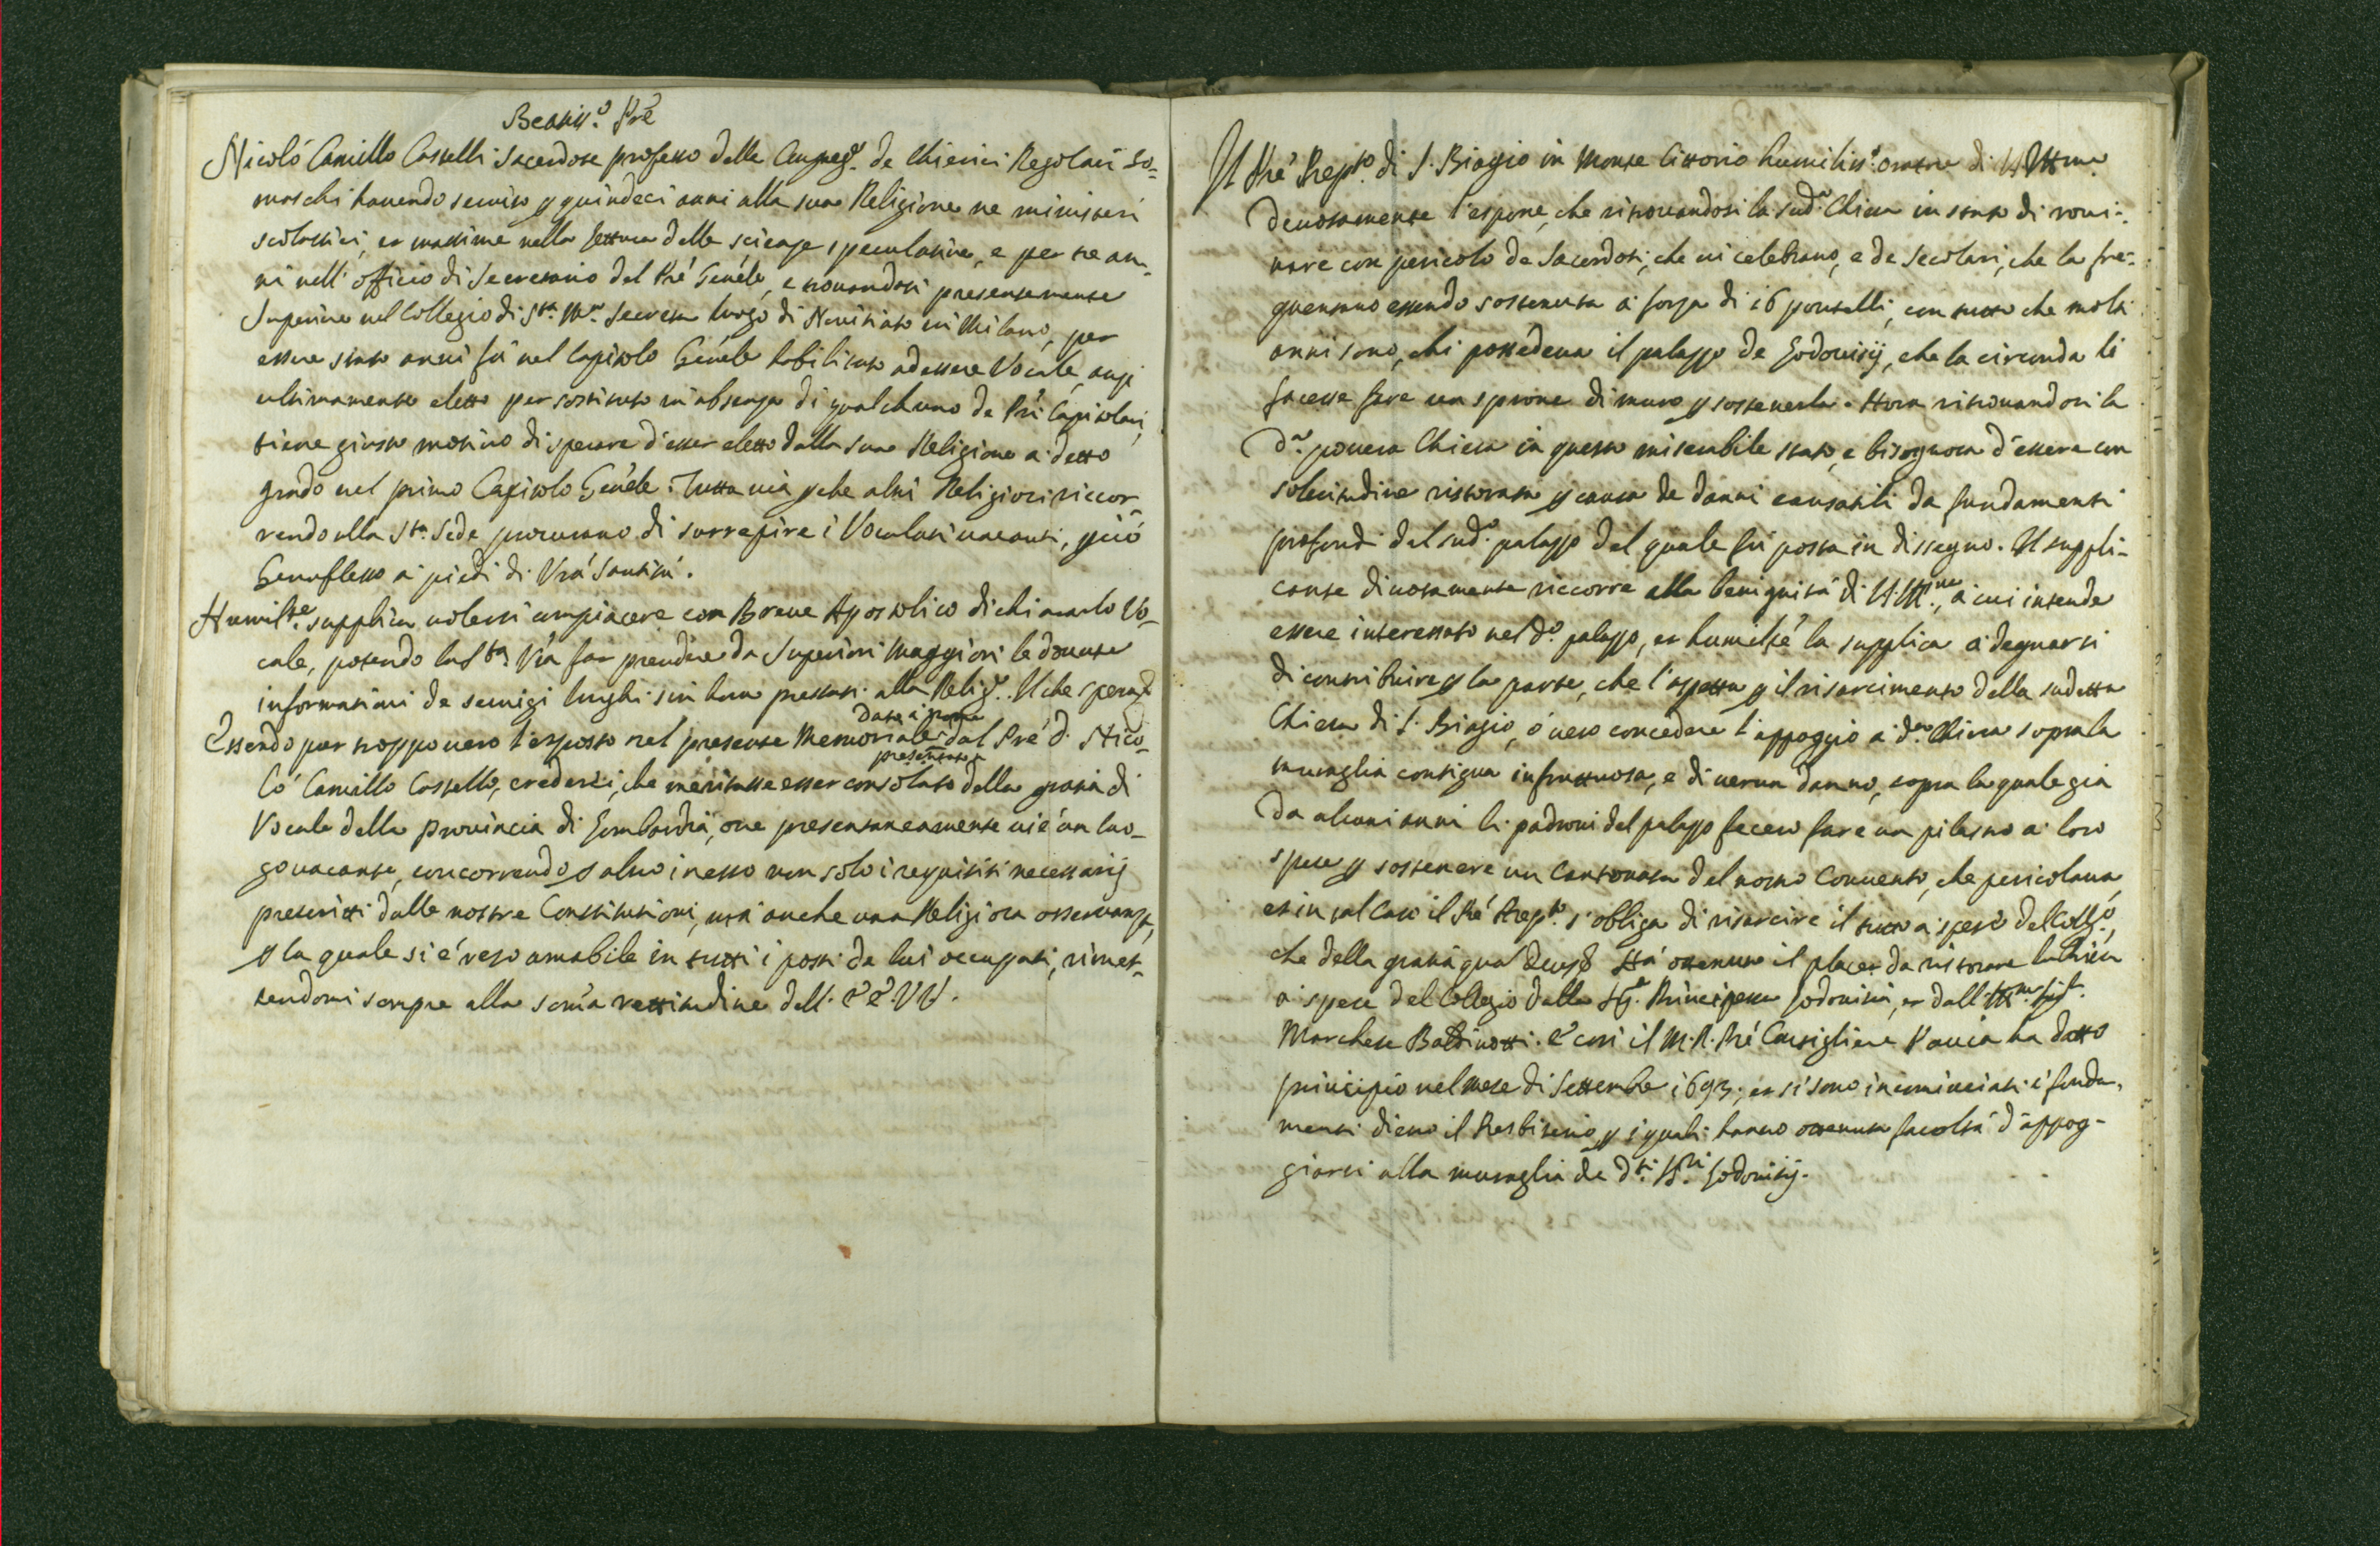 Beatiss.o Pre
Nicoló Camillo Castelli Sacerdote professo della Congreg.e de Chierici Regolari So-
maschi havendo servito p quindeci anni alla sua Religione ne ministeri
scolastici, et massime nella lettura delle scienze speculative, e per tre an-
ni nell' officio di Secretario del Pré Genéle, e trovandosi presentemente
Superiore nel Collegio di Sta. Ma. Secreta luogo di Novitiato in Milano, per
essere stato anni fú nel Capitolo Genéle habilitato ad essere Vocale, anzi
ultimamente eletto per sostituto in absenza di qualchuno de Pri Capitolari,
tiene giusto motivo di sperare d'esser eletto dalla sua Religione a detto
grado nel primo Capitolo Genéle. Tutta uia pche altri Religiosi riccor-
rendo alla Sta. Sede procurano di surrepire i Vocalati uacanti, pció
Genuflesso a piedi di Vrá Santitá.
Humilte. supplica uolersi compiacere con Breve Apostolico dichiararlo Vo-
cale, potendo la Sta. Vra far prendere da Superiori Maggiori le douute
informationi de seruigi lunghi sin hora prestati alla Relig.e. Il che sperad
Essendo pur troppo uero l'esposto nel presente Memoriale dal Pre D. Nico-
presentato
ló Camillo Castello, crederei, che meritasse esser consolato della gratia di
Vocale della provincia di Lombardia, oue presentaneamente ui é un luo-
go uacante, concorrendo p altro in esso non solo i requisiti necessarij
prescritti dalle nostre Constitutioni, má anche una Religiosa osservanza,
p la quale si é reso amabile in tutti i posti da lui occupati, rimet-
tendomi sempre alla soma rettitudine dell' EE. VV.
Il Pré Prepto. di S. Biagio in Monte Cittorio humiliss.o oratore di V. Illma.
deuotamente l'espone, che ritrouandosi la sud.a Chiesa in stato di roui-
nare con pericolo de Sacerdoti, che ui celebrano, e de Secolari, che la fre-
quentano essendo sostenuta a forza di 16 pontelli, con tutto che molti
anni sono, chi possedeua il palazzo de Lodouisij, che la circonda li
facesse fare un sprone di muro p sostenerla. Hora ritrouandosi la
d.a pouera Chiesa in questo miserabile stato, e bisognosa d'essere con
solecitudine ristorata p causa de danni causatili da fundamenti
profondi del sud.o palazzo del quale fú posta in dissegno. Il suppli-
cante diuotamente riccorre alla benignitá di V. Ill.ma, a cui intende
essere interessato nel d.o palazzo, et humilté la supplica a degnarsi
di contribuire p la parte, che l'aspetta p il risarcimento della sudetta
Chiesa di S. Biagio, ó uero concedere l'appoggio a d.a Chiesa sopra la
muraglia contigua infruttuosa, e di uerun danno, sopra la quale giá
da alcuni anni li padroni del palazzo fecero fare un pilastro a loro
spese p sostenere un Cantonata del nostro Conuento, che pericolaua,
et in tal caso il Pré Prepto. s'obliga di risarcire il tutto a spese del Collo.,
che della gratia qua Deus Há ottenuto il placet da ristorare la Chiesa
a spese del Collegio dalla Sig.a Principessa Lodouisia, et dall' Ill.mo Sig.r
Marchese Baldinotti. E cosi il M.R. Pré Consigliere Pauia ha datto
principio nel mese di Settembre 1693; et si sono incominciati i fonda-
menti dietro il Presbiterio, p i quali hanno ottenuta facoltá d'appog-
giarsi alla muraglia de d.ti SS.ri Lodouisij.